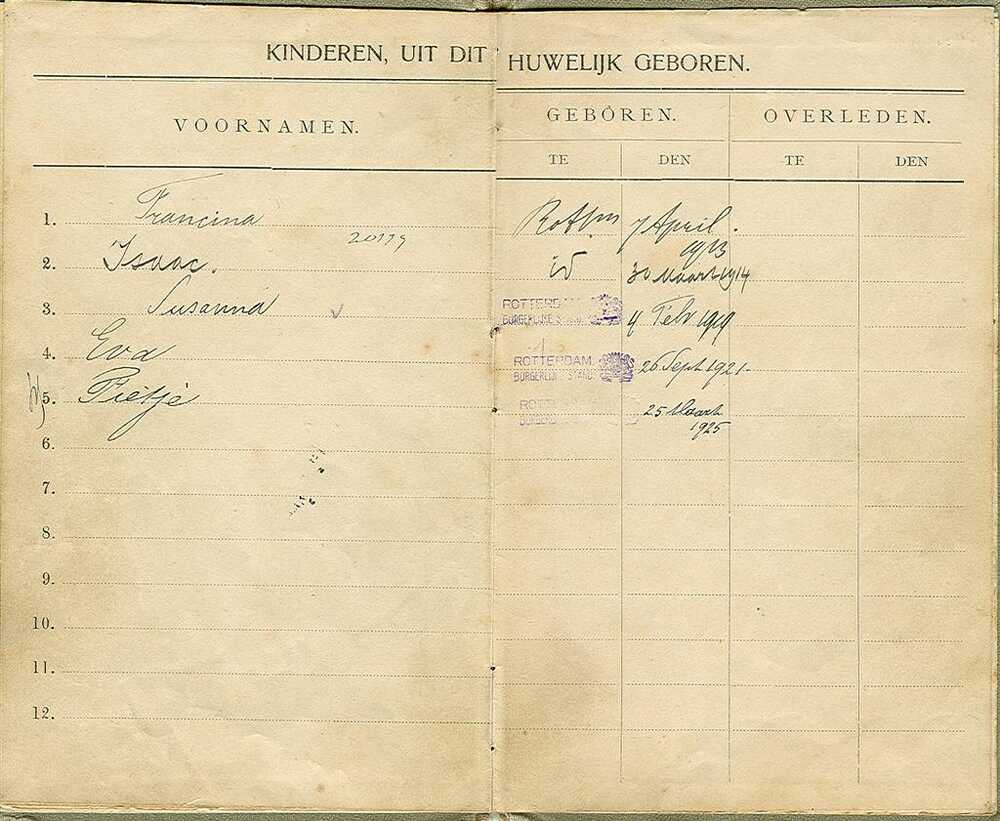 KINDEREN, UIT DIT HUWELIJK GEBOREN.
VOORNAMEN. GEBOREN. OVERLEDEN.
TE DEN TE DEN
1. Francina Rott. 7 April.
1913
20199
2. Isaac. id 30 Maart 1914
3. Susanna ROTTERDAM BURGERLIJKE STAND 4 Febr 1919
4. Eva ROTTERDAM BURGERLIJKE STAND. 26 Sept 1921.
5. Fietje ROTT BURGERL 25 Maart
1925
6.
7.
8.
9.
10.
11.
12.